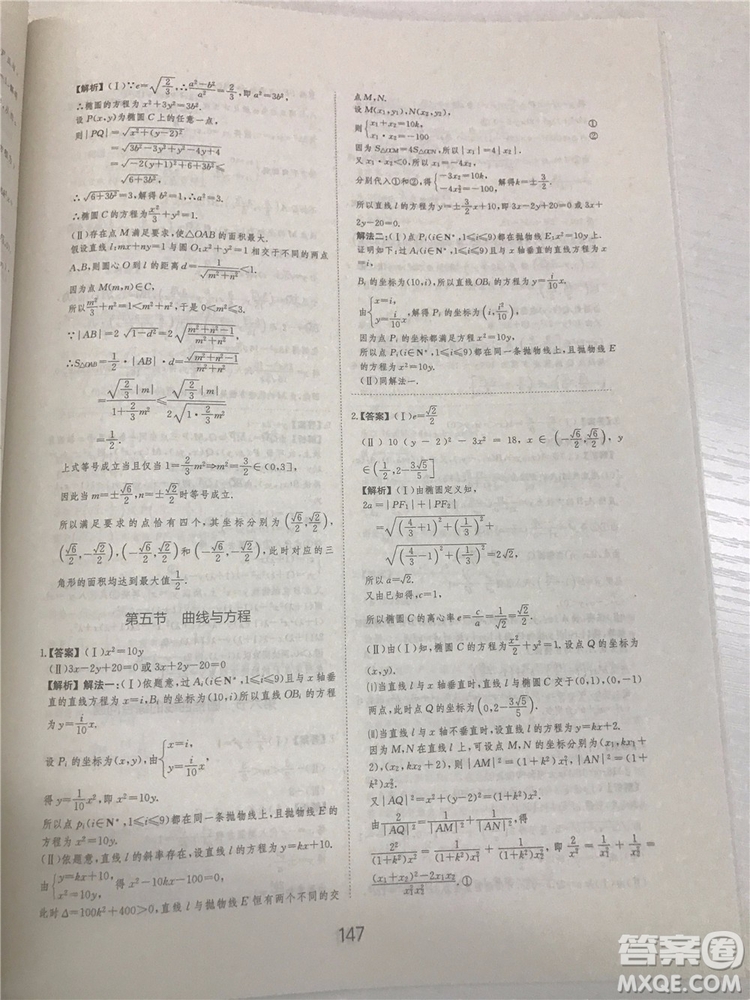 【解析】(Ⅰ)∵e=√(2/3),∴(a²−b²)/a²=2/3,即 a²=3b².
∴椭圆的方程为 x²+3y²=3b².
设 P(x,y)为椭圆 C 上的任意一点,
则|PQ|=√(x²+(y−2)²)
=√(3b²−3y²+y²−4y+4)
=√(−2(y+1)²+6+3b²)≤
√(6+3b²),
∴√(6+3b²)=3,解得 b²=1,所以 a²=3.
∴椭圆 C 的方程为 x²/3+y²=1.
(Ⅱ)存在点 M 满足要求,使△OAB 的面积最大.
假设直线 l:mx+ny=1 与圆 O:x²+y²=1 相交于不同的两点
A、B,则圆心 O 到 l 的距离 d=1/√(m²+n²)<1.
因为点 M(m,n)∈C,
所以 m²/3+n²=1<m²+n²,于是 0<m²≤3.
∵|AB|=2√(1−d²)=2√((m²+n²−1)/(m²+n²)),
∴S△OAB=1/2·|AB|·d=√(m²+n²−1)/(m²+n²)
=√(2/3)|m|/(1+2/3 m²)≤√(2/3)|m|/(2√(1·2/3 m²))
=1/2.
上式等号成立当且仅当 1=2/3 m²⇒m²=3/2∈(0,3],
因此当 m=±√6/2,n=±√2/2 时等号成立.
所以满足要求的点恰有四个,其坐标分别为(√6/2,√2/2),
(√6/2,−√2/2),(−√6/2,√2/2)和(−√6/2,−√2/2),此时对应的三
角形的面积均达到最大值 1/2.
第五节 曲线与方程
1.【答案】(Ⅰ)x²=10y
(Ⅱ)3x−2y+20=0 或 3x+2y−20=0
【解析】解法一:(Ⅰ)依题意,过 Aᵢ(i∈N*,1≤i≤9)且与 x 轴垂
直的直线方程为 x=i,Bᵢ 的坐标为(10,i)所以直线 OBᵢ 的方程
为 y=i/10 x.
设 Pᵢ 的坐标为(x,y),由{x=i, y=i/10 x,
得 y=1/10 x²,即 x²=10y.
所以点 pᵢ(i∈N*,1≤i≤9)都在同一抛物线上,且抛物线 E 的
方程为 x²=10y.
(Ⅱ)依题意,直线 l 的斜率存在,设直线 l 的方程为 y=kx+10.
由{y=kx+10, x²=10y 得 x²−10kx−100=0.
此时 Δ=100k²+400>0,直线 l 与抛物线 E 恒有两个不同的交
点 M,N.
设 M(x₁,y₁),N(x₂,y₂),
则{x₁+x₂=10k, ①
x₁·x₂=−100 ②
因为 S△OCM=4S△OCN,所以|x₁|=4|x₂|.
又 x₁·x₂<0,所以 x₁=−4x₂,
分别代入①和②,得{−3x₂=10k, −4x₂²=−100, 解得 k=±3/2.
所以直线 l 的方程为 y=±3/2 x+10,即 3x−2y+20=0 或
3x+2y−20=0.
解法二:(Ⅰ)点 Pᵢ(i∈N*,1≤i≤9)都在抛物线 E:x²=10y 上.
证明如下:过 Aᵢ(i∈N*,1≤i≤9)且与 x 轴垂直的直线方程为 x
=i,
Bᵢ 的坐标为(10,i),所以直线 OBᵢ 的方程为 y=i/10 x,
由{x=i, y=i/10 x, 解得 Pᵢ 的坐标为(i,i²/10),
因为点 Pᵢ 的坐标都满足方程 x²=10y,
所以点 Pᵢ(i∈N*,1≤i≤9)都在同一条抛物线上,且抛物线 E
的方程为 x²=10y.
(Ⅱ)同解法一.
2.【答案】(Ⅰ)e=√2/2
(Ⅱ)10(y−2)²−3x²=18, x∈(−√6/2,√6/2), y
∈(1/2,2−3√5/5]
【解析】(Ⅰ)由椭圆定义知,
2a=|PF₁|+|PF₂|
=√((4/3+1)²+(1/3)²)+
√((4/3−1)²+(1/3)²)=2√2,
所以 a=√2.
又由已知得,c=1,
所以椭圆 C 的离心率 e=c/a=1/√2=√2/2.
(Ⅱ)由(Ⅰ)知,椭圆 C 的方程为 x²/2+y²=1,设点 Q 的坐标为
(x,y).
(ⅰ)当直线 l 与 x 轴垂直时,直线 l 与椭圆 C 交于(0,1),(0,−1)
两点,此时点 Q 的坐标为(0,2−3√5/5).
(ⅱ)当直线 l 与 x 轴不垂直时,设直线 l 的方程为 y=kx+2.
因为 M,N 在直线 l 上,可设点 M,N 的坐标分别为(x₁,kx₁+
2),(x₂,kx₂+2),则|AM|²=(1+k²)x₁²,|AN|²=(1+
k²)x₂².
又|AQ|²=x²+(y−2)²=(1+k²)x².
由 2/|AQ|²=1/|AM|²+1/|AN|²,得
2/((1+k²)x²)=1/((1+k²)x₁²)+1/((1+k²)x₂²),即 2/x²=1/x₁²+1/x₂²=
((x₁+x₂)²−2x₁x₂)/(x₁²x₂²).①
147
答案圈
MXQE.COM